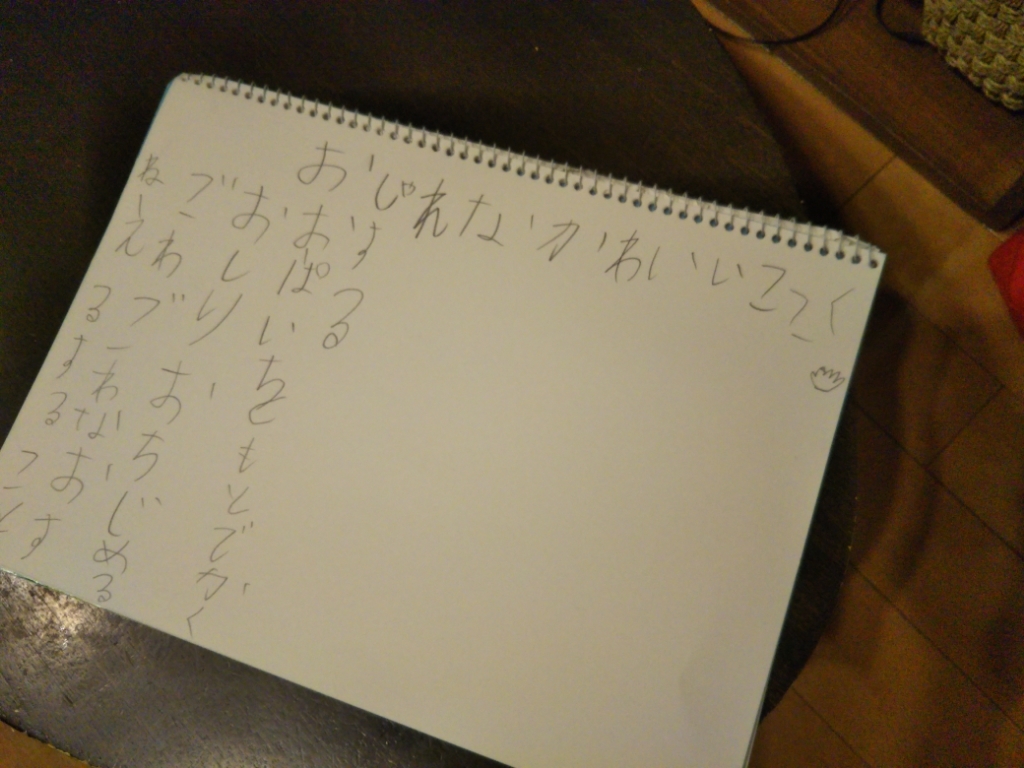 おじれなかわいいここく
する
おぱいちをもとでがく
おしりおちじめる
ごわごわなおす
ねえるするこ